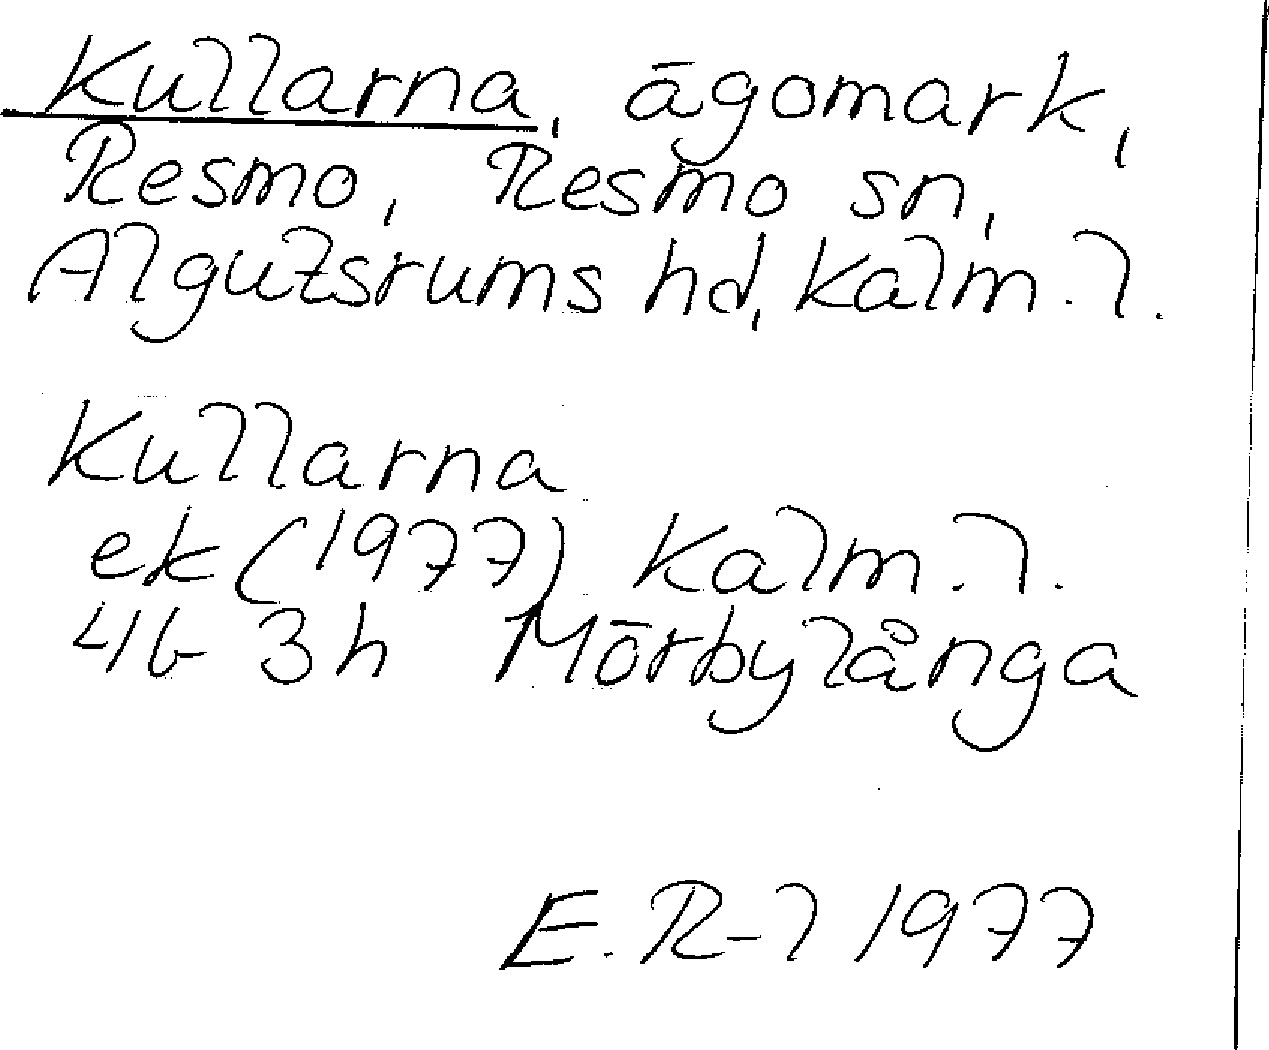 Kullarna, ägomark,
Resmo, Resmo sn,
Algutsrums hd, Kalm. l.
Kullarna
ek (1977) Kalm. l.
4G 3h Mörbylånga
E. R-l 1977